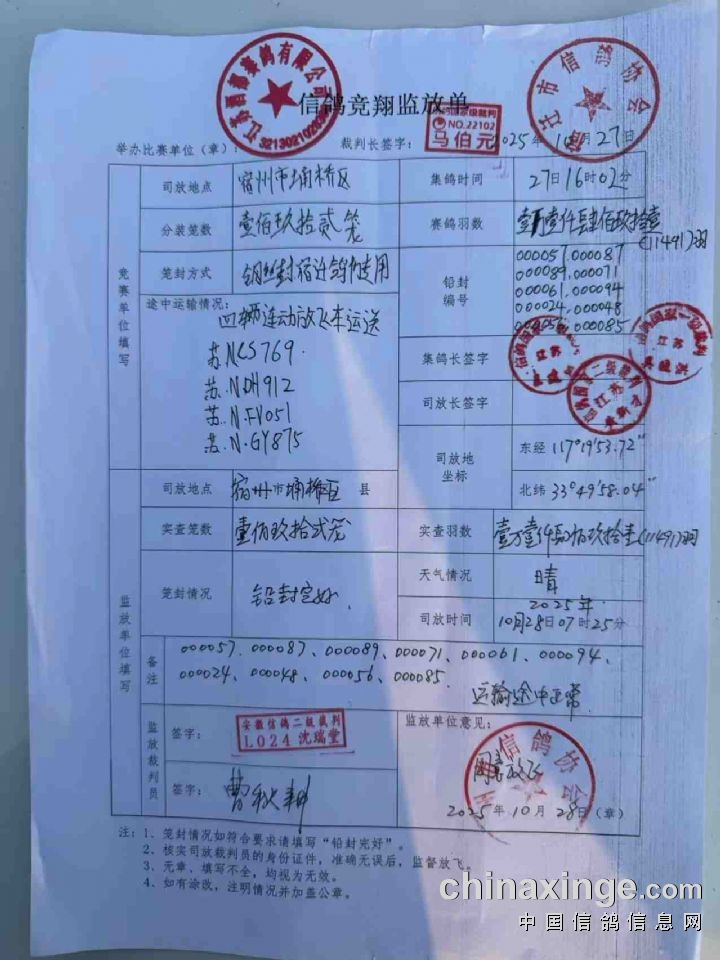 信鸽竞翔监放单
举办比赛单位（章）：
裁判长签字：
2025年10月27日
NO.22102
马伯元
3213021026
迁市信鸽协会
竞赛单位填写
司放地点 宿州市埇桥区 集鸽时间 27日16时02分
分装笼数 壹佰玖拾贰笼 赛鸽羽数 壹万壹仟肆佰玖拾壹
(11491)羽
笼封方式 铅封编号
000057.000087
000089.000071
000061.000094
000024.000048
000056.000085
途中运输情况：
四辆连动放飞车运送
苏.NCS769.
苏.NDH912
苏.N.FV051
苏.N.GY875
集鸽长签字
司放长签字
江苏
江苏
江苏
司放地坐标
东经 117°19′53.72″
北纬 33°49′58.04″
监放单位填写
司放地点 宿州市埇桥区 县
实查笼数 壹佰玖拾贰笼 实查羽数 (11491)羽
笼封情况 铅封完好. 天气情况 晴
司放时间 2025年.
10月28日07时25分
备注
000057.000087、000089、000071、000061、000094、
000024、000048、000056、000085.
运输途中正常
监放裁判员
签字：
安徽信鸽二级裁判
L024 沈瑞堂
签字：
监放单位意见：
同意放飞
信鸽协会
2025年10月28日（章）
注：1、笼封情况如符合要求请填写“铅封完好”。
2、核实司放裁判员的身份证件，准确无误后，监督放飞。
3、无章、填写不全，均视为无效。
4、如有涂改，注明情况并加盖公章。
chinaxinge.com
中国信鸽信息网